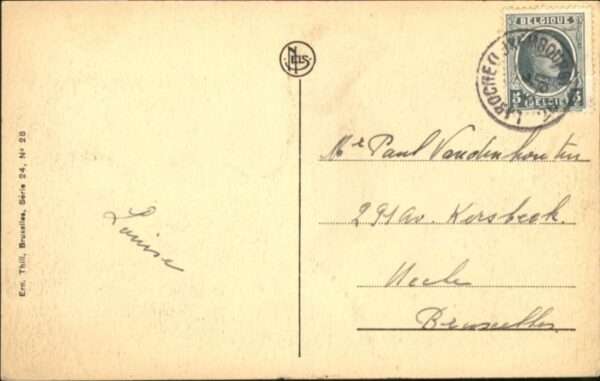 NELS
BELGIQUE
5 BELGIE 5
LAROCHE (LUXEMBOURG)
Mr Paul Vandenhouten
291 av. Kersbeek.
Uccle
Bruxelles.
Louise
Ern. Thill, Bruxelles, Série 24, N° 28